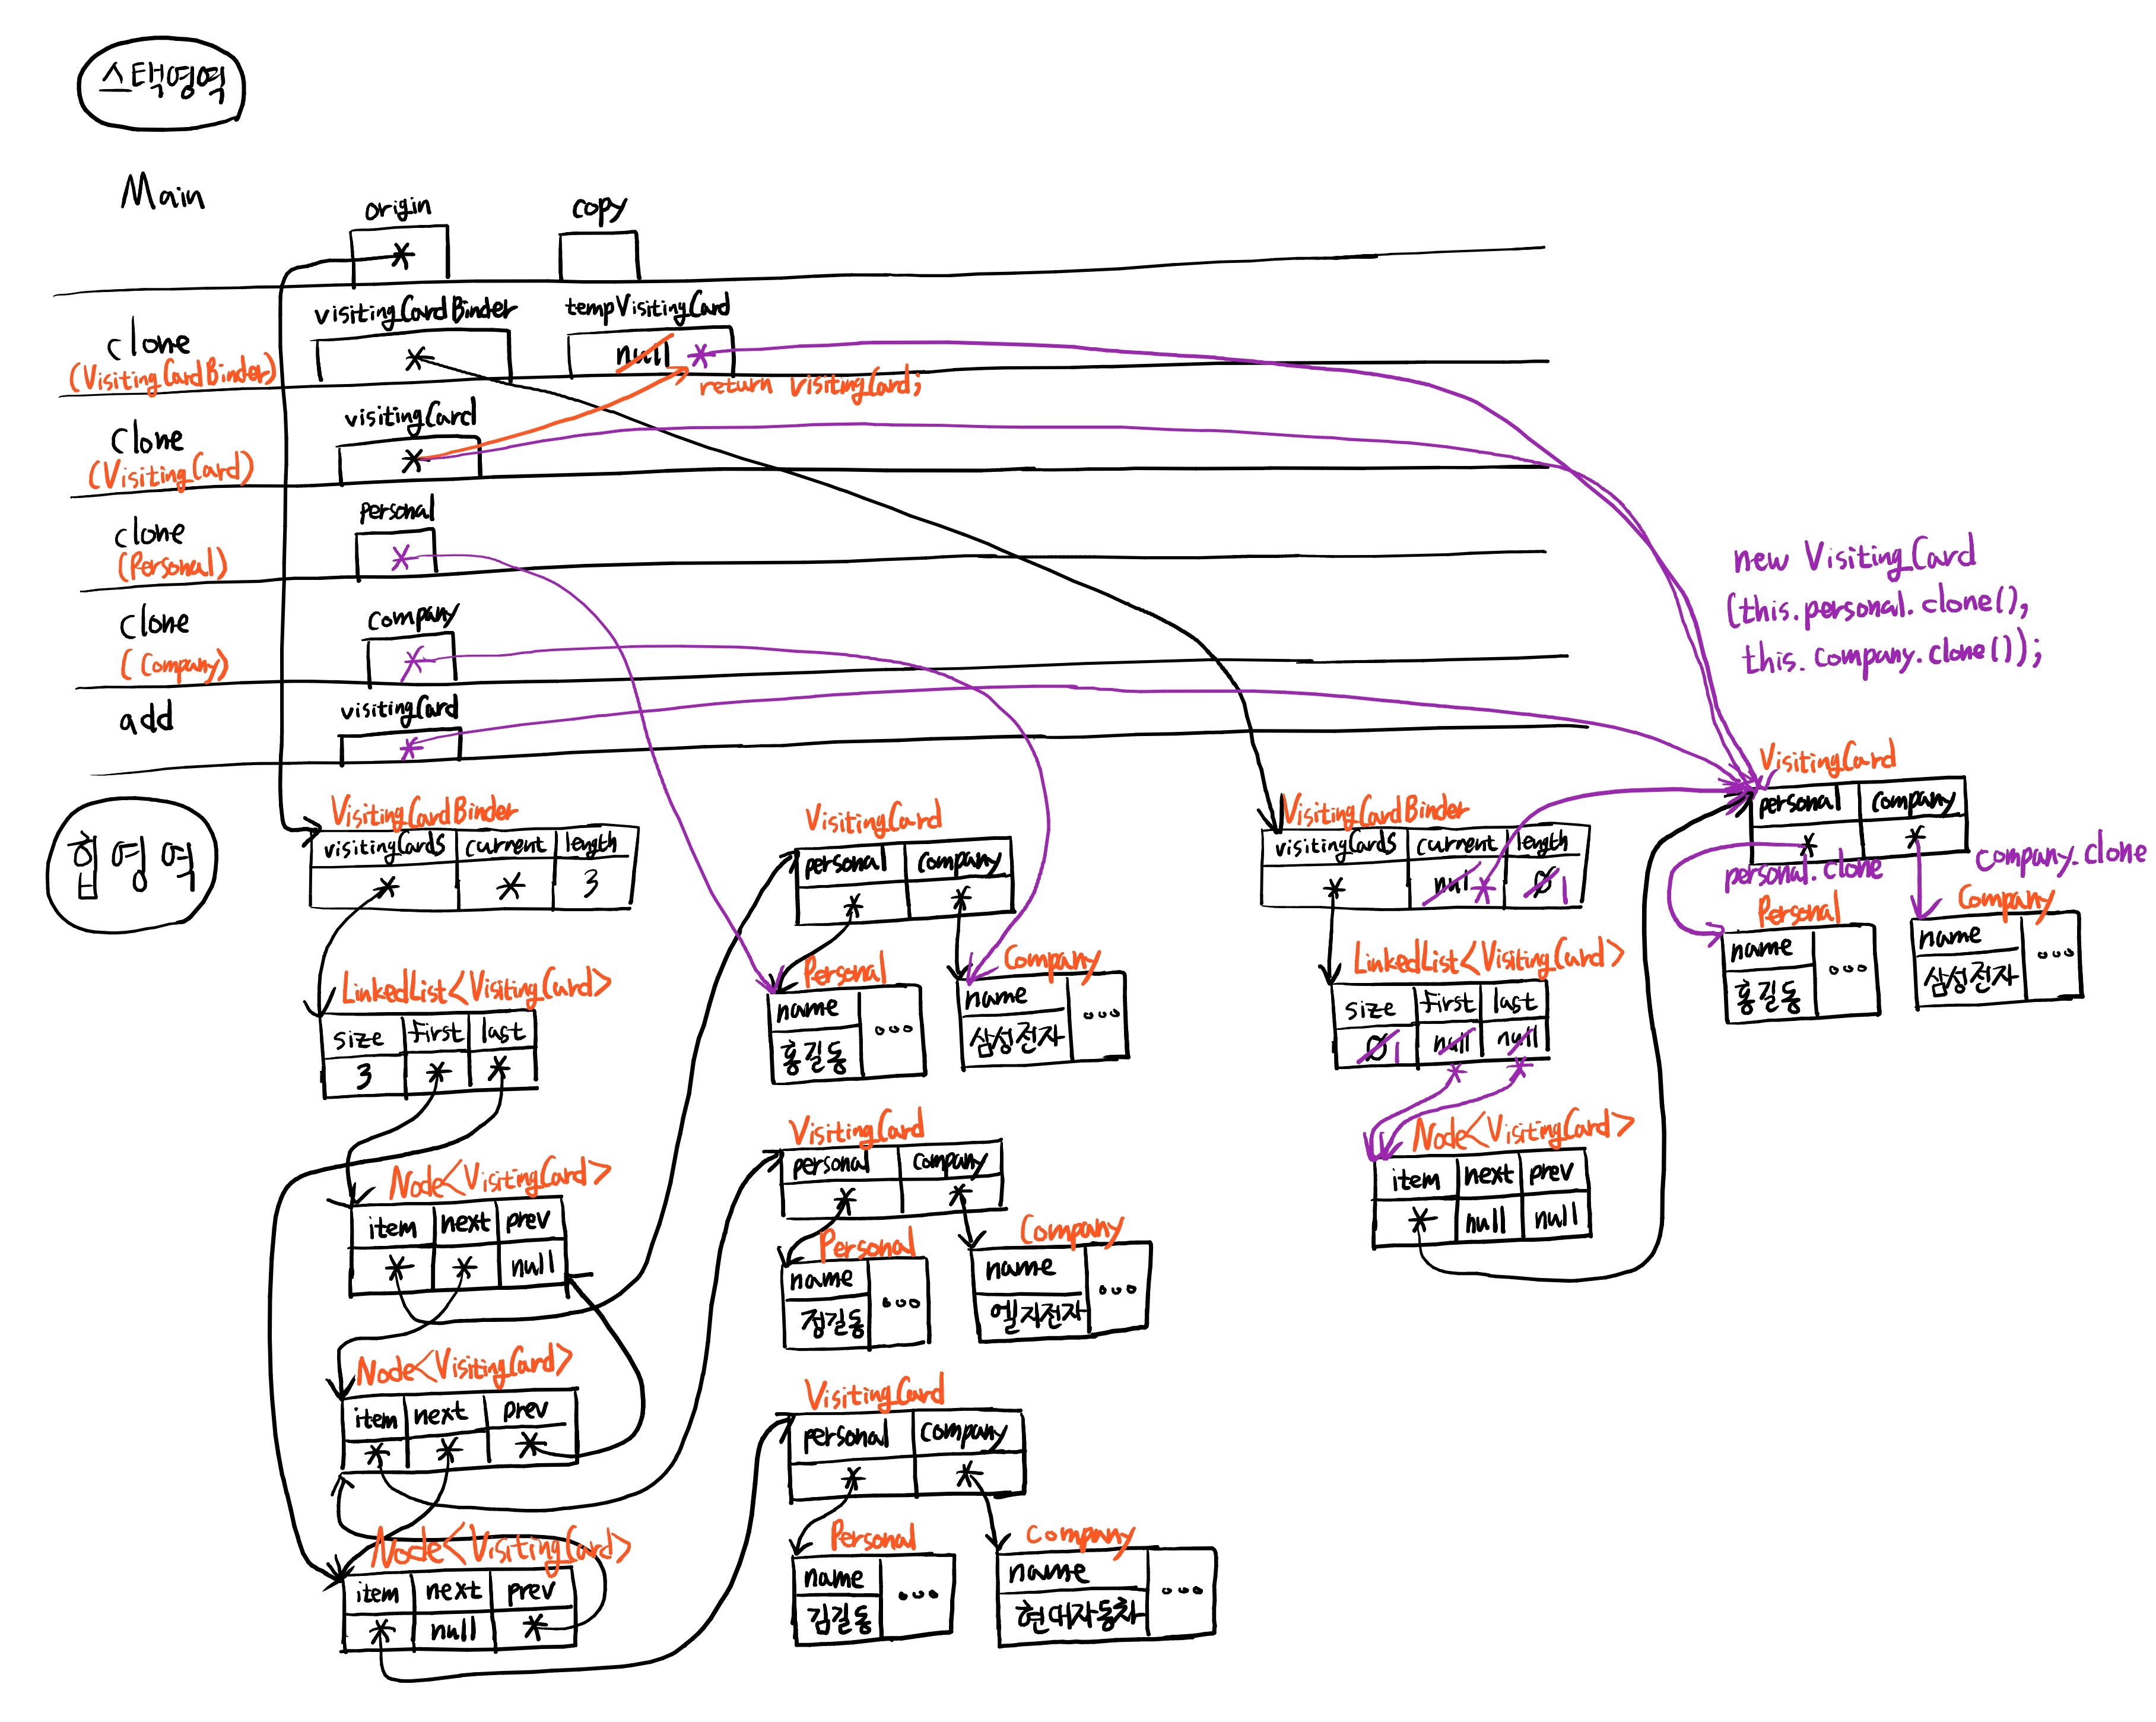 스택영역
Main
origin
copy
*
clone
(VisitingCardBinder)
visitingCardBinder
tempVisitingCard
*
null *
return visitingCard;
clone
(VisitingCard)
visitingCard
*
clone
(Personal)
Personal
*
clone
(Company)
Company
*
add
visitingCard
*
new VisitingCard
(this.personal.clone(),
this.company.clone());
힙영역
VisitingCardBinder
visitingCards current length
* * 3
LinkedList<VisitingCard>
size first last
3 * *
Node<VisitingCard>
item next prev
* * null
Node<VisitingCard>
item next prev
* * *
Node<VisitingCard>
item next prev
* null *
VisitingCard
personal company
* *
Personal
name
홍길동
Company
name
삼성전자
VisitingCard
personal company
* *
Personal
name
정길동
Company
name
엘지전자
VisitingCard
personal company
* *
Personal
name
김길동
Company
name
현대자동차
VisitingCardBinder
visitingCards current length
* null * 0 1
LinkedList<VisitingCard>
size first last
0 1 null null
* *
Node<VisitingCard>
item next prev
* null null
VisitingCard
personal company
* *
personal.clone
company.clone
Personal
name
홍길동
Company
name
삼성전자